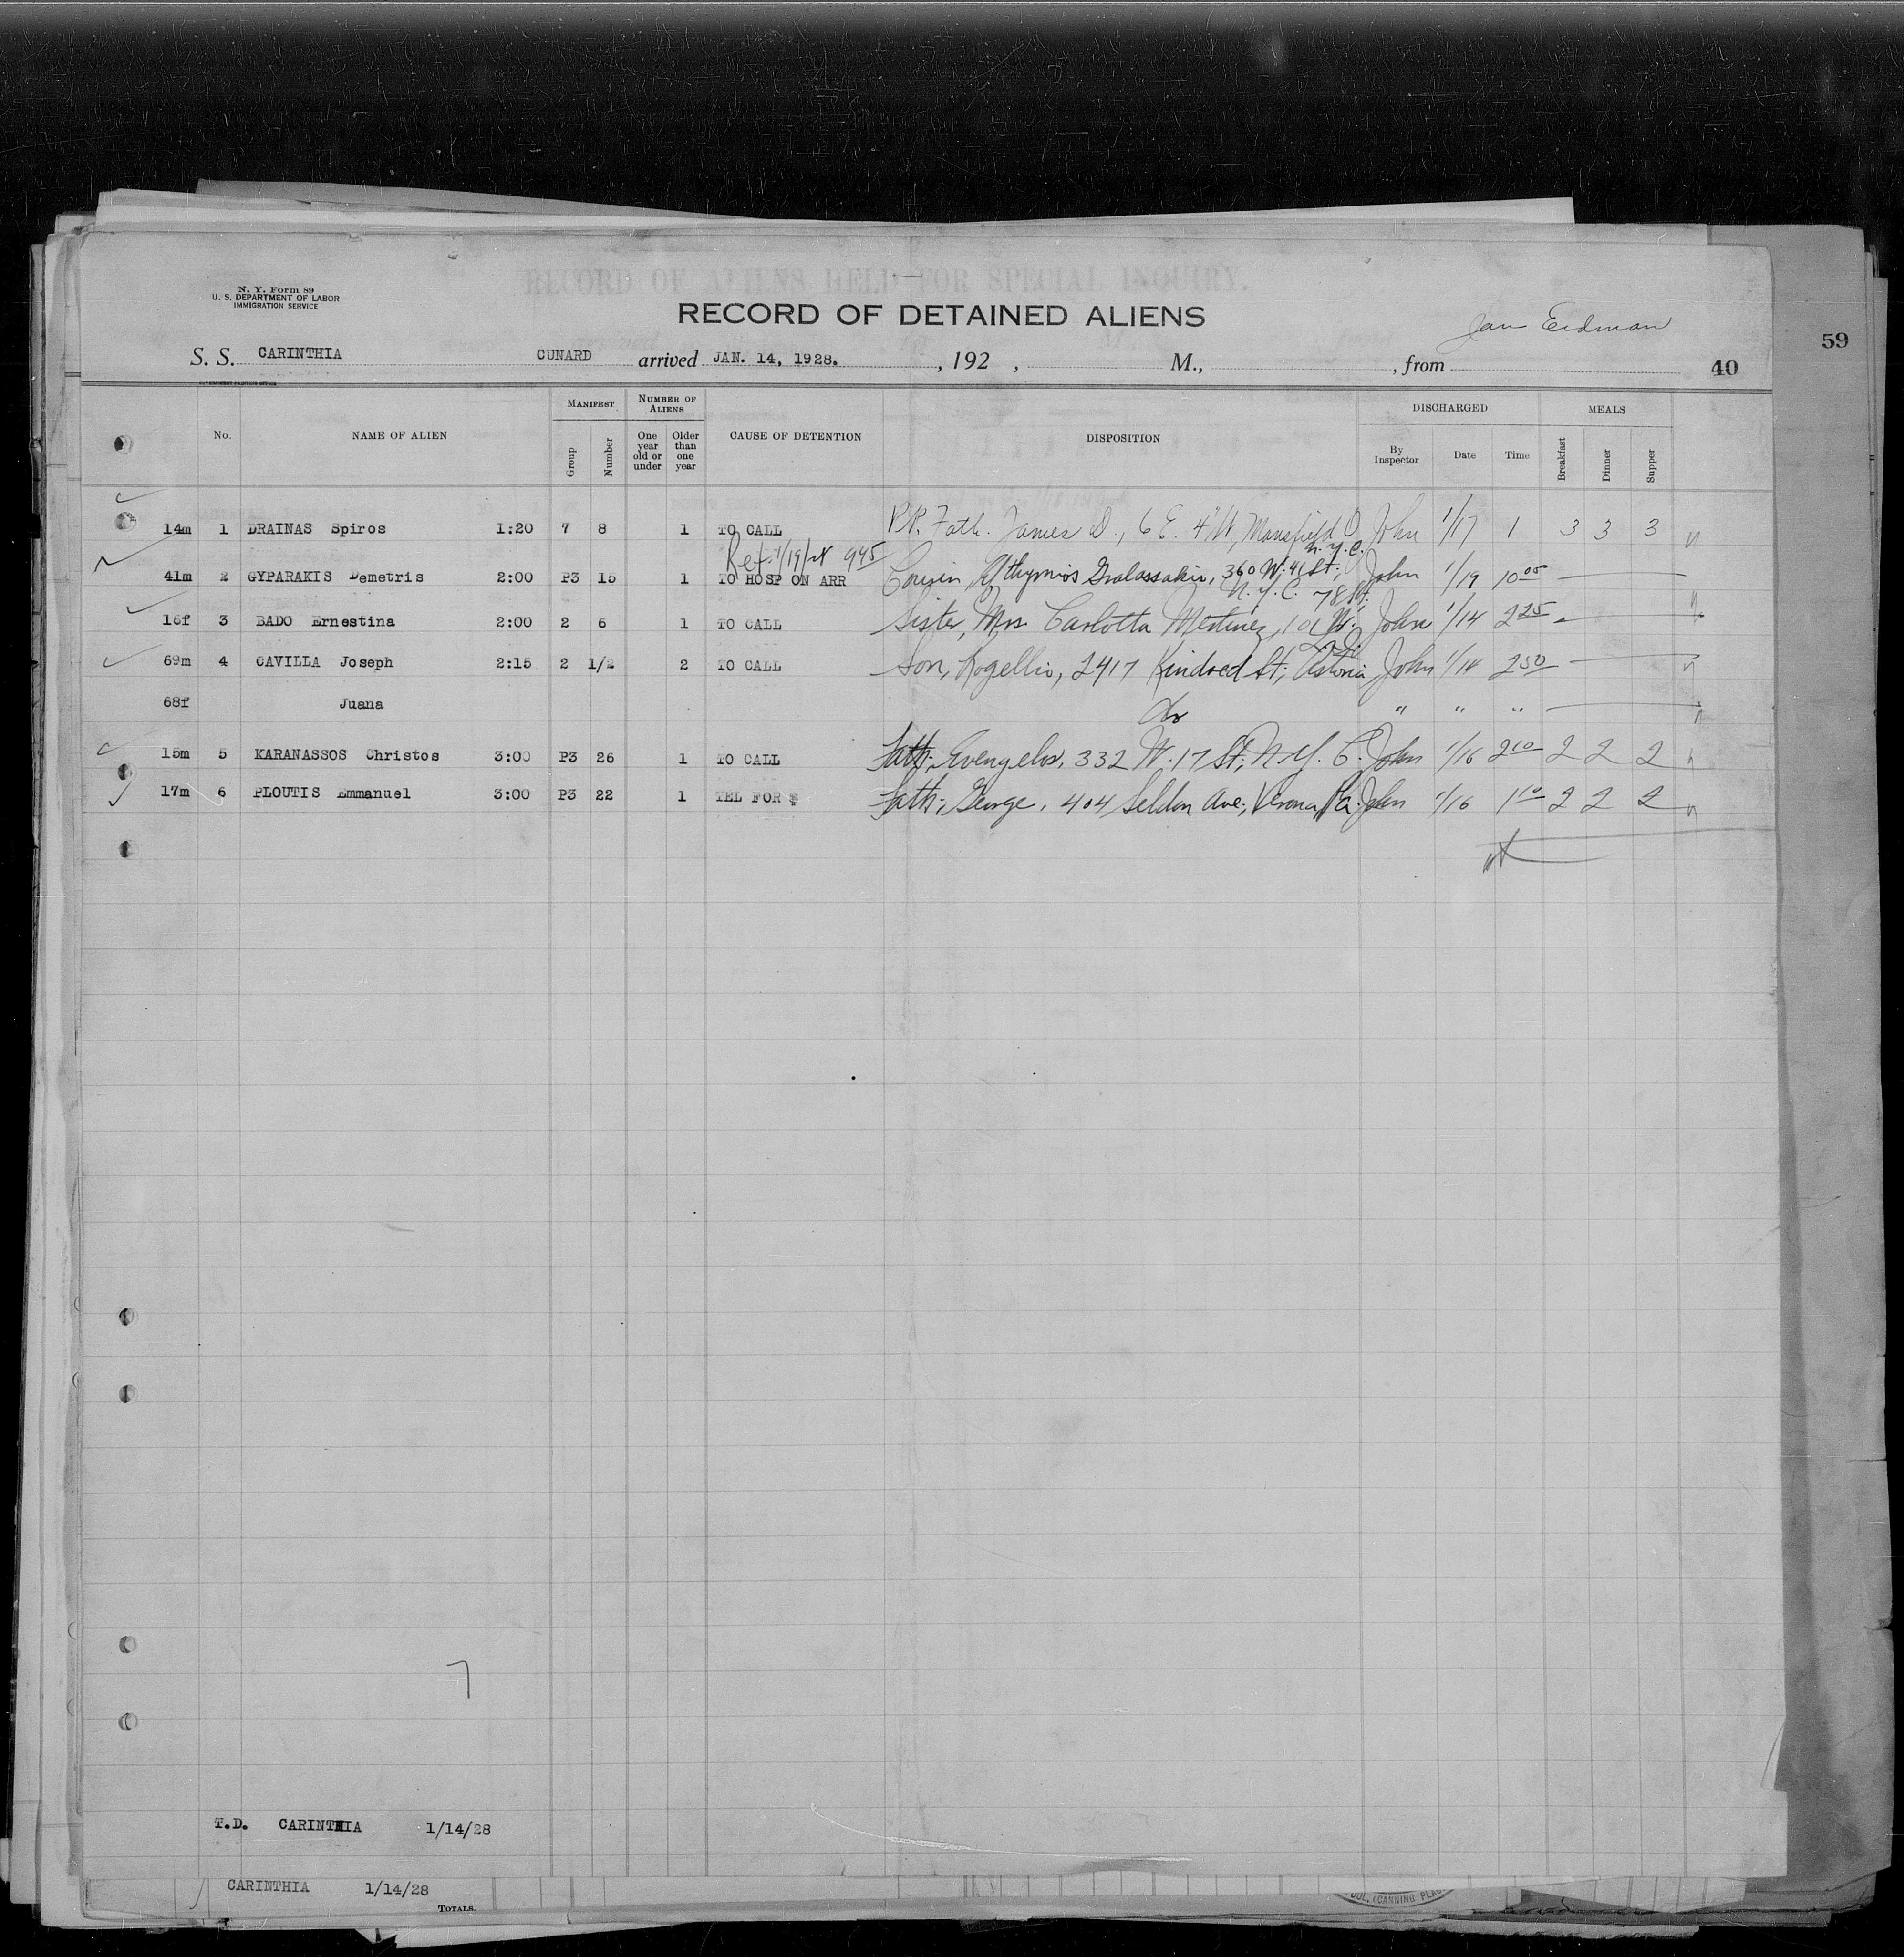 RECORD OF ALIENS HELD FOR SPECIAL INQUIRY.
N. Y. Form 89
U. S. DEPARTMENT OF LABOR
IMMIGRATION SERVICE
RECORD OF DETAINED ALIENS
Jan Erdman
59
S. S. CARINTHIA CUNARD arrived JAN. 14, 1928. , 192 , M., , from 40
No. NAME OF ALIEN MANIFEST Group Number NUMBER OF ALIENS One year old or under Older than one year CAUSE OF DETENTION DISPOSITION DISCHARGED By Inspector Date Time MEALS Breakfast Dinner Supper
14m 1 DRAINAS Spiros 1:20 7 8 1 TO CALL Fath. James D., 6 E. 4" St, Mansfield O. John 1/17 1 3 3 3
1/19/28 945 N.Y.C.
41m 2 GYPARAKIS Demetris 2:00 P3 15 1 TO HOSP ON ARR Cousin 360 W. 41 St; John 1/19 10 05
N.Y.C. 78 St.
16f 3 BADO Ernestina 2:00 2 6 1 TO CALL Sister, Mrs. Carlotta Mestinez, 101 W. John 1/14 2 25
69m 4 CAVILLA Joseph 2:15 2 1/2 2 TO CALL Son, Rogellio, 2417 Kindred St; Astoria John 1/14 2 50
68f Juana do " " "
15m 5 KARANASSOS Christos 3:00 P3 26 1 TO CALL Fath. Evengelos, 332 W. 17 St; N.Y.C. John 1/16 2 10 2 2 2
17m 6 PLOUTIS Emmanuel 3:00 P3 22 1 TEL FOR $ Fath; George, 404 Seldon Ave; Verona Pa. John 1/16 1 10 2 2 2
7
T.D. CARINTHIA 1/14/28
CARINTHIA 1/14/28
TOTALS